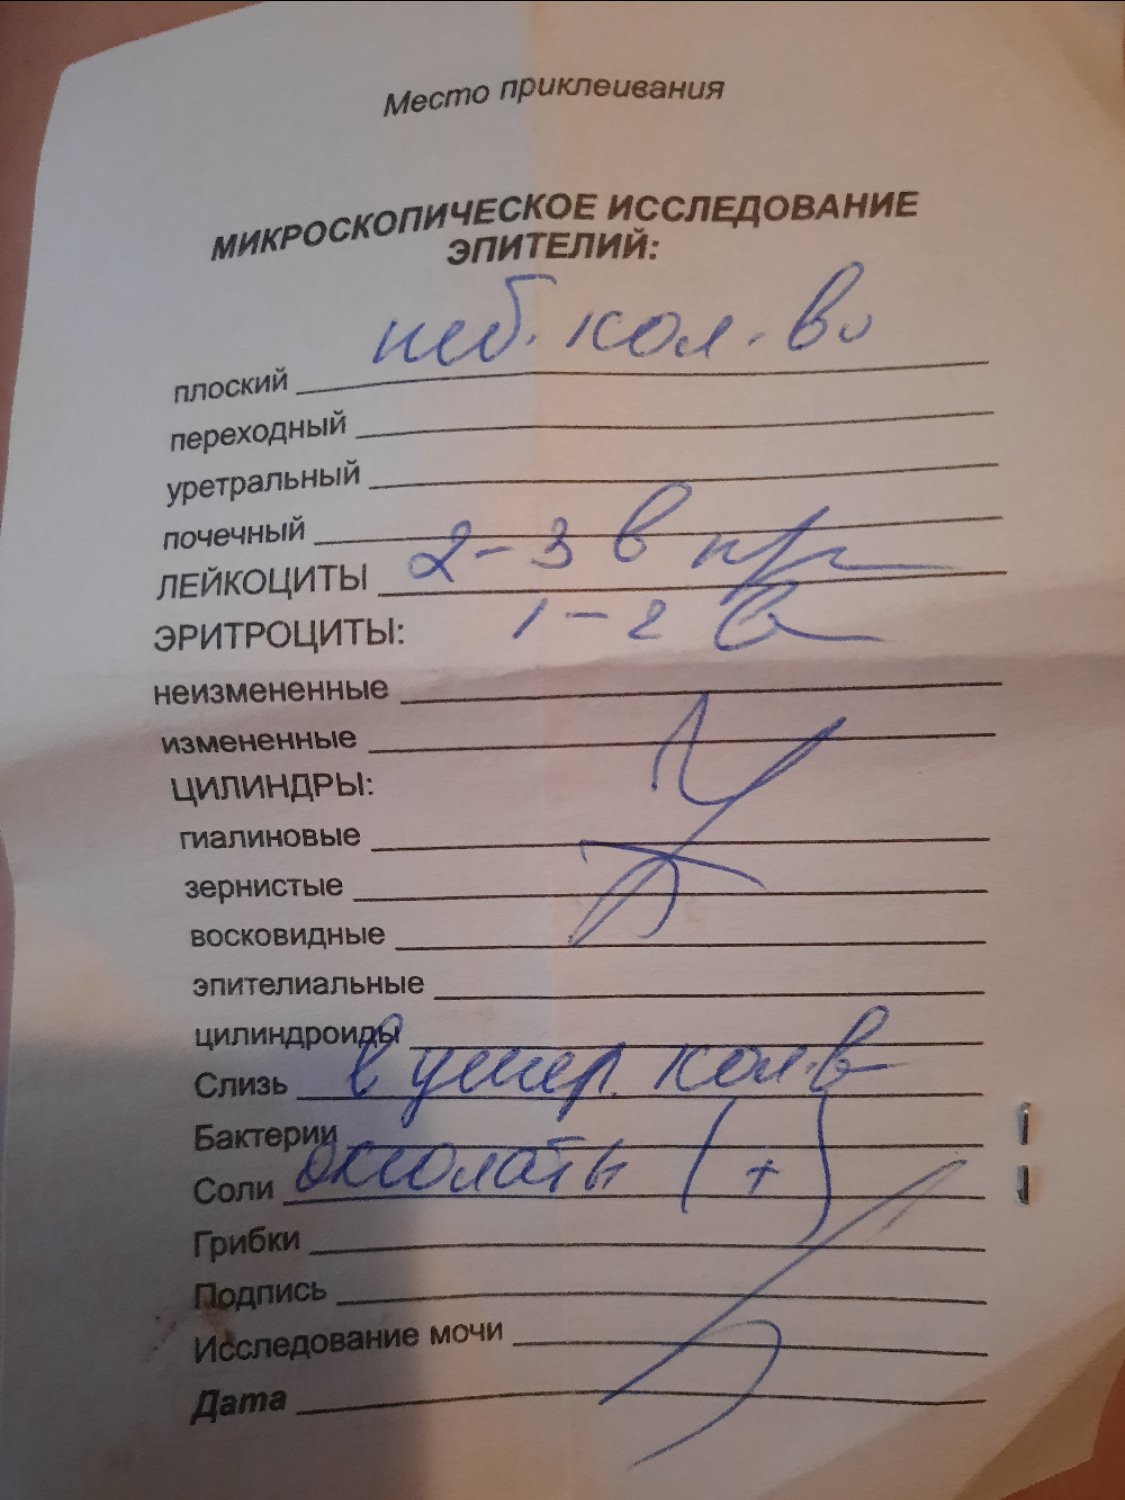 Место приклеивания
МИКРОСКОПИЧЕСКОЕ ИССЛЕДОВАНИЕ
ЭПИТЕЛИЙ:
плоский неб. кол. во
переходный
уретральный
почечный
ЛЕЙКОЦИТЫ 2-3 в п/з
ЭРИТРОЦИТЫ: 1-2 в
неизмененные
измененные
ЦИЛИНДРЫ:
гиалиновые
зернистые
восковидные
эпителиальные
цилиндроиды
Слизь в умер. кол-в
Бактерии
Соли оксолаты (+)
Грибки
Подпись
Исследование мочи
Дата